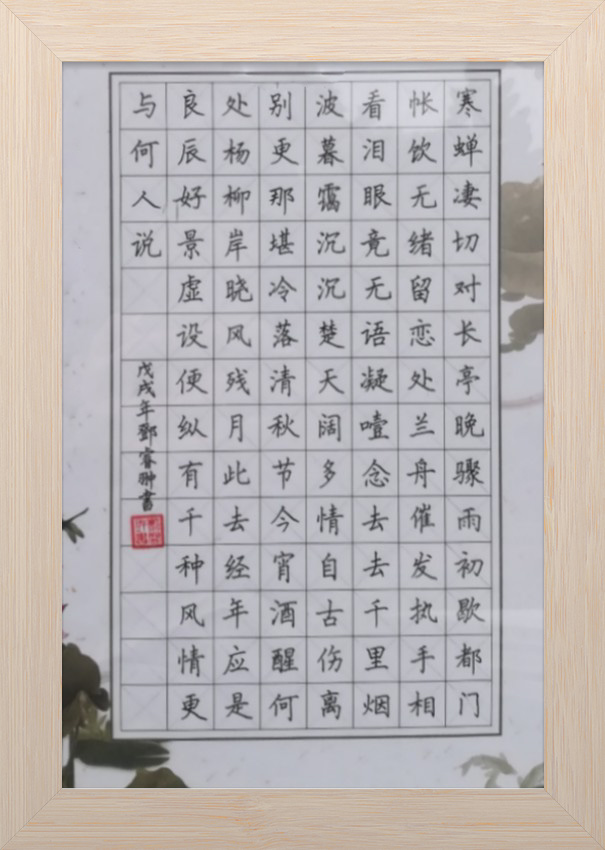 寒蝉凄切对长亭晚骤雨初歇都门
帐饮无绪留恋处兰舟催发执手相
看泪眼竟无语凝噎念去去千里烟
波暮霭沉沉楚天阔多情自古伤离
别更那堪冷落清秋节今宵酒醒何
处杨柳岸晓风残月此去经年应是
良辰好景虚设便纵有千种风情更
与何人说
戊戌年鄧睿翀書